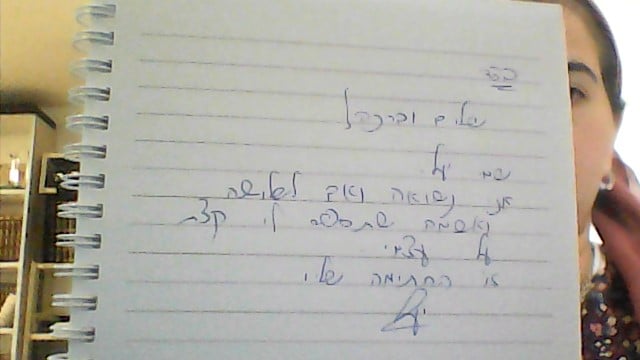 בס"ד
שלום וברכה!
שמי יעל
אני נשואה ואם לשלושה
ואשמח שתספר לי קצת
על עצמי
זו החתימה שלי